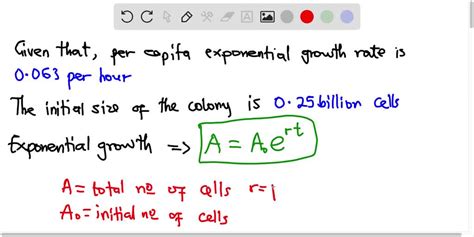 Given that, per capita exponential growth rate is
0.063 per hour
The initial size of the colony is 0.25 billion cells
Exponential growth => A = A₀e^{rt}
A = total no of cells r = i
A₀ = initial no of cells